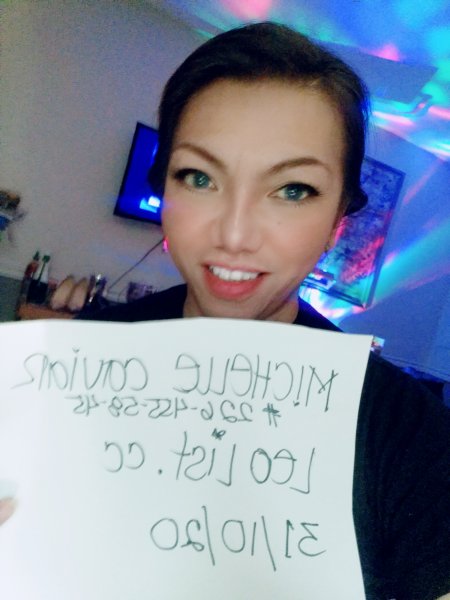 MiCHELLE
# 226-455-58-45
LEOLiST.CC
31/10/20